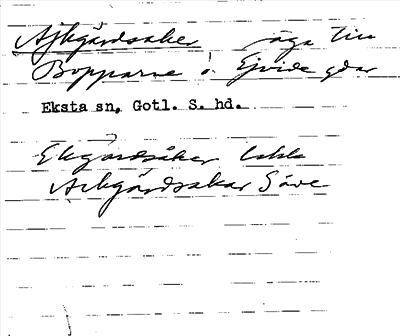 Ajkgårdsaker äga till
Bopparve o. Ejvide gdar
Eksta sn, Gotl. S. hd.
Ekgårdsåker
Aikgårdsakar Säve